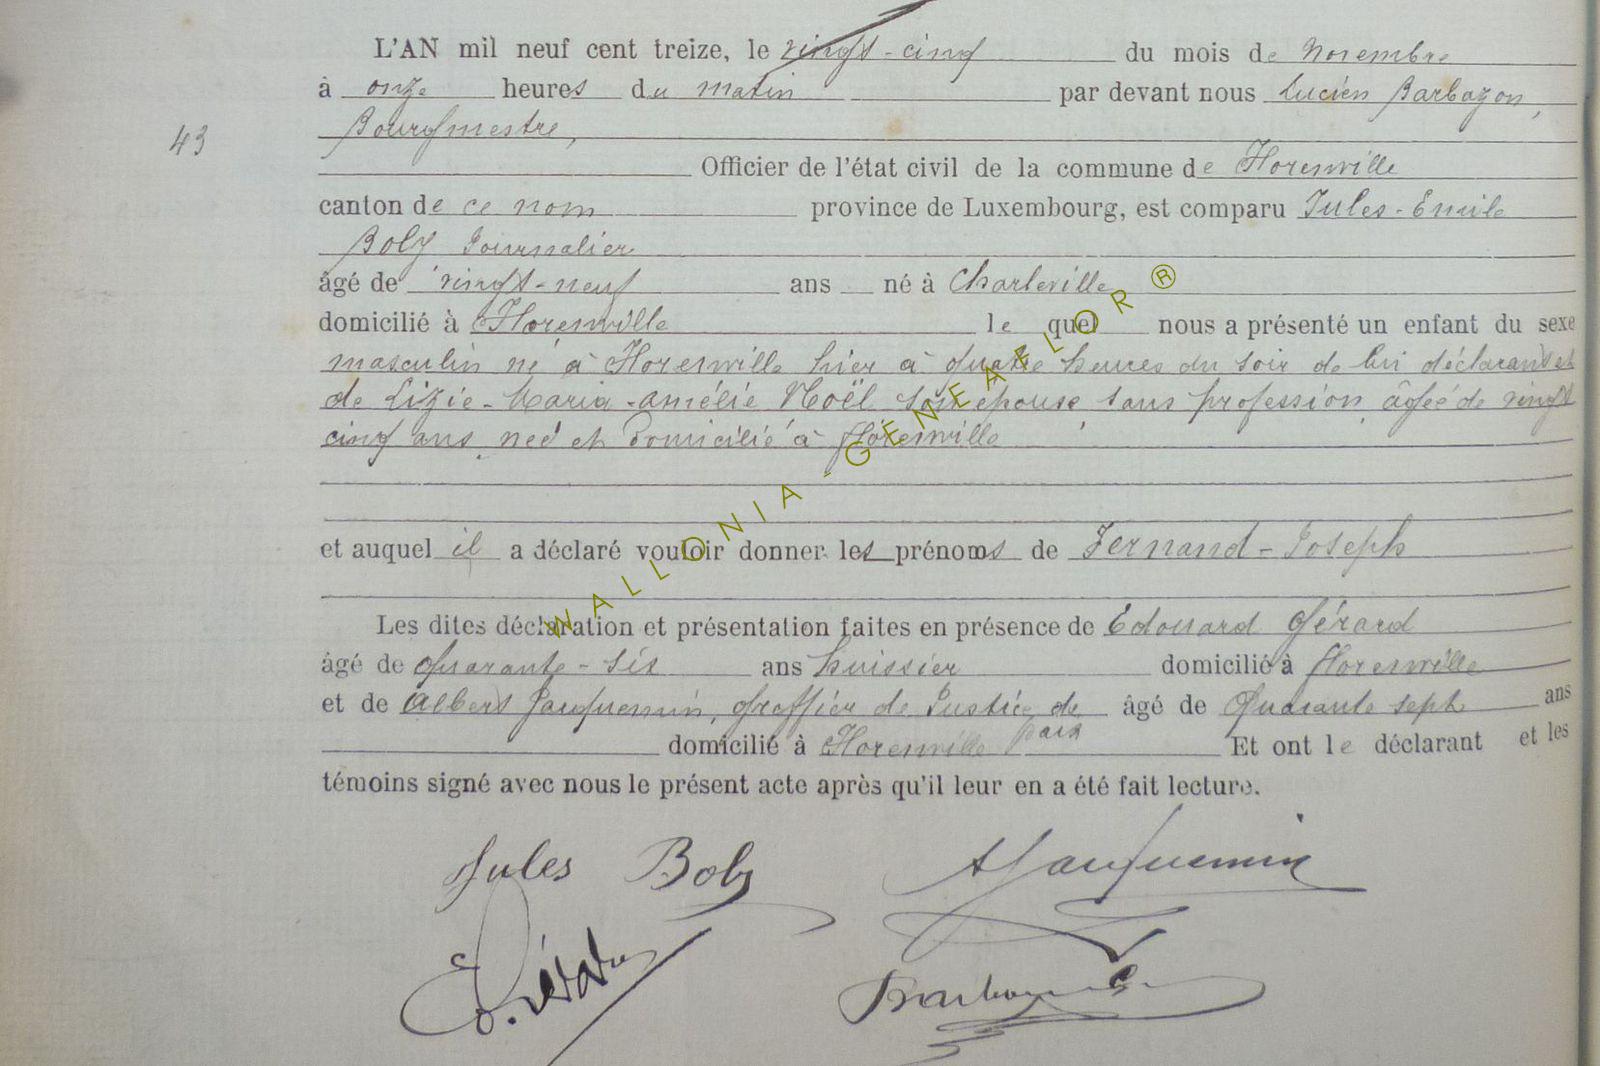 L'AN mil neuf cent treize, le vingt-cinq du mois de novembre
à onze heures du matin par devant nous Lucien Barbazon,
Bourgmestre,
43
Officier de l'état civil de la commune de Florenville
canton de ce nom province de Luxembourg, est comparu Jules-Emile
Boly Journalier
âgé de vingt-neuf ans né à Charleville
domicilié à Florenville le quel nous a présenté un enfant du sexe
masculin né à Florenville hier à quatre heures du soir de lui déclarant et
de Lizie-Maria-Amélie Noël son épouse sans profession âgée de vingt
cinq ans, née et domicilié à Florenville
et auquel il a déclaré vouloir donner les prénoms de Fernand-Joseph
Les dites déclaration et présentation faites en présence de Edouard Gérard
âgé de quarante-six ans huissier domicilié à Florenville
et de Albert Jacquemin, greffier de Justice de âgé de Quarante sept ans
paix
domicilié à Florenville Et ont le déclarant et les
témoins signé avec nous le présent acte après qu'il leur en a été fait lecture.
Jules Boly AJacquemin
E. Gérard
WALLONIA-GENEAFLOR®